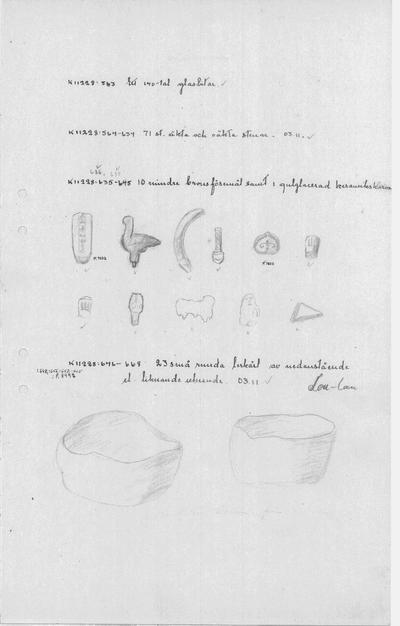 K11228:563 Ett 140-tal glasbitar.
K11228:564-634 71 st. äkta och oäkta stenar. 03.11.
K11228:635-645 10 mindre bronsföremål samt 1 gulglacerad keramikskärva
K11228:646-668 23 små runda lerkärl av nedanstående
el. liknande utseende. 03.11
Lou-lan